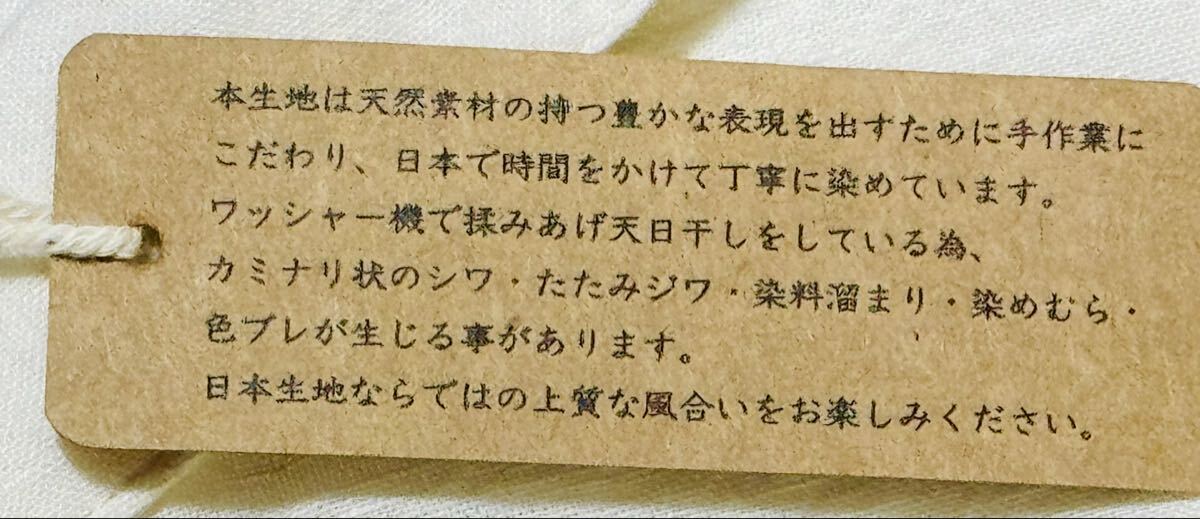 本生地は天然素材の持つ豊かな表現を出すために手作業に
こだわり、日本で時間をかけて丁寧に染めています。
ワッシャー機で揉みあげ天日干しをしている為、
カミナリ状のシワ・たたみジワ・染料溜まり・染めむら・
色ブレが生じる事があります。
日本生地ならではの上質な風合いをお楽しみください。